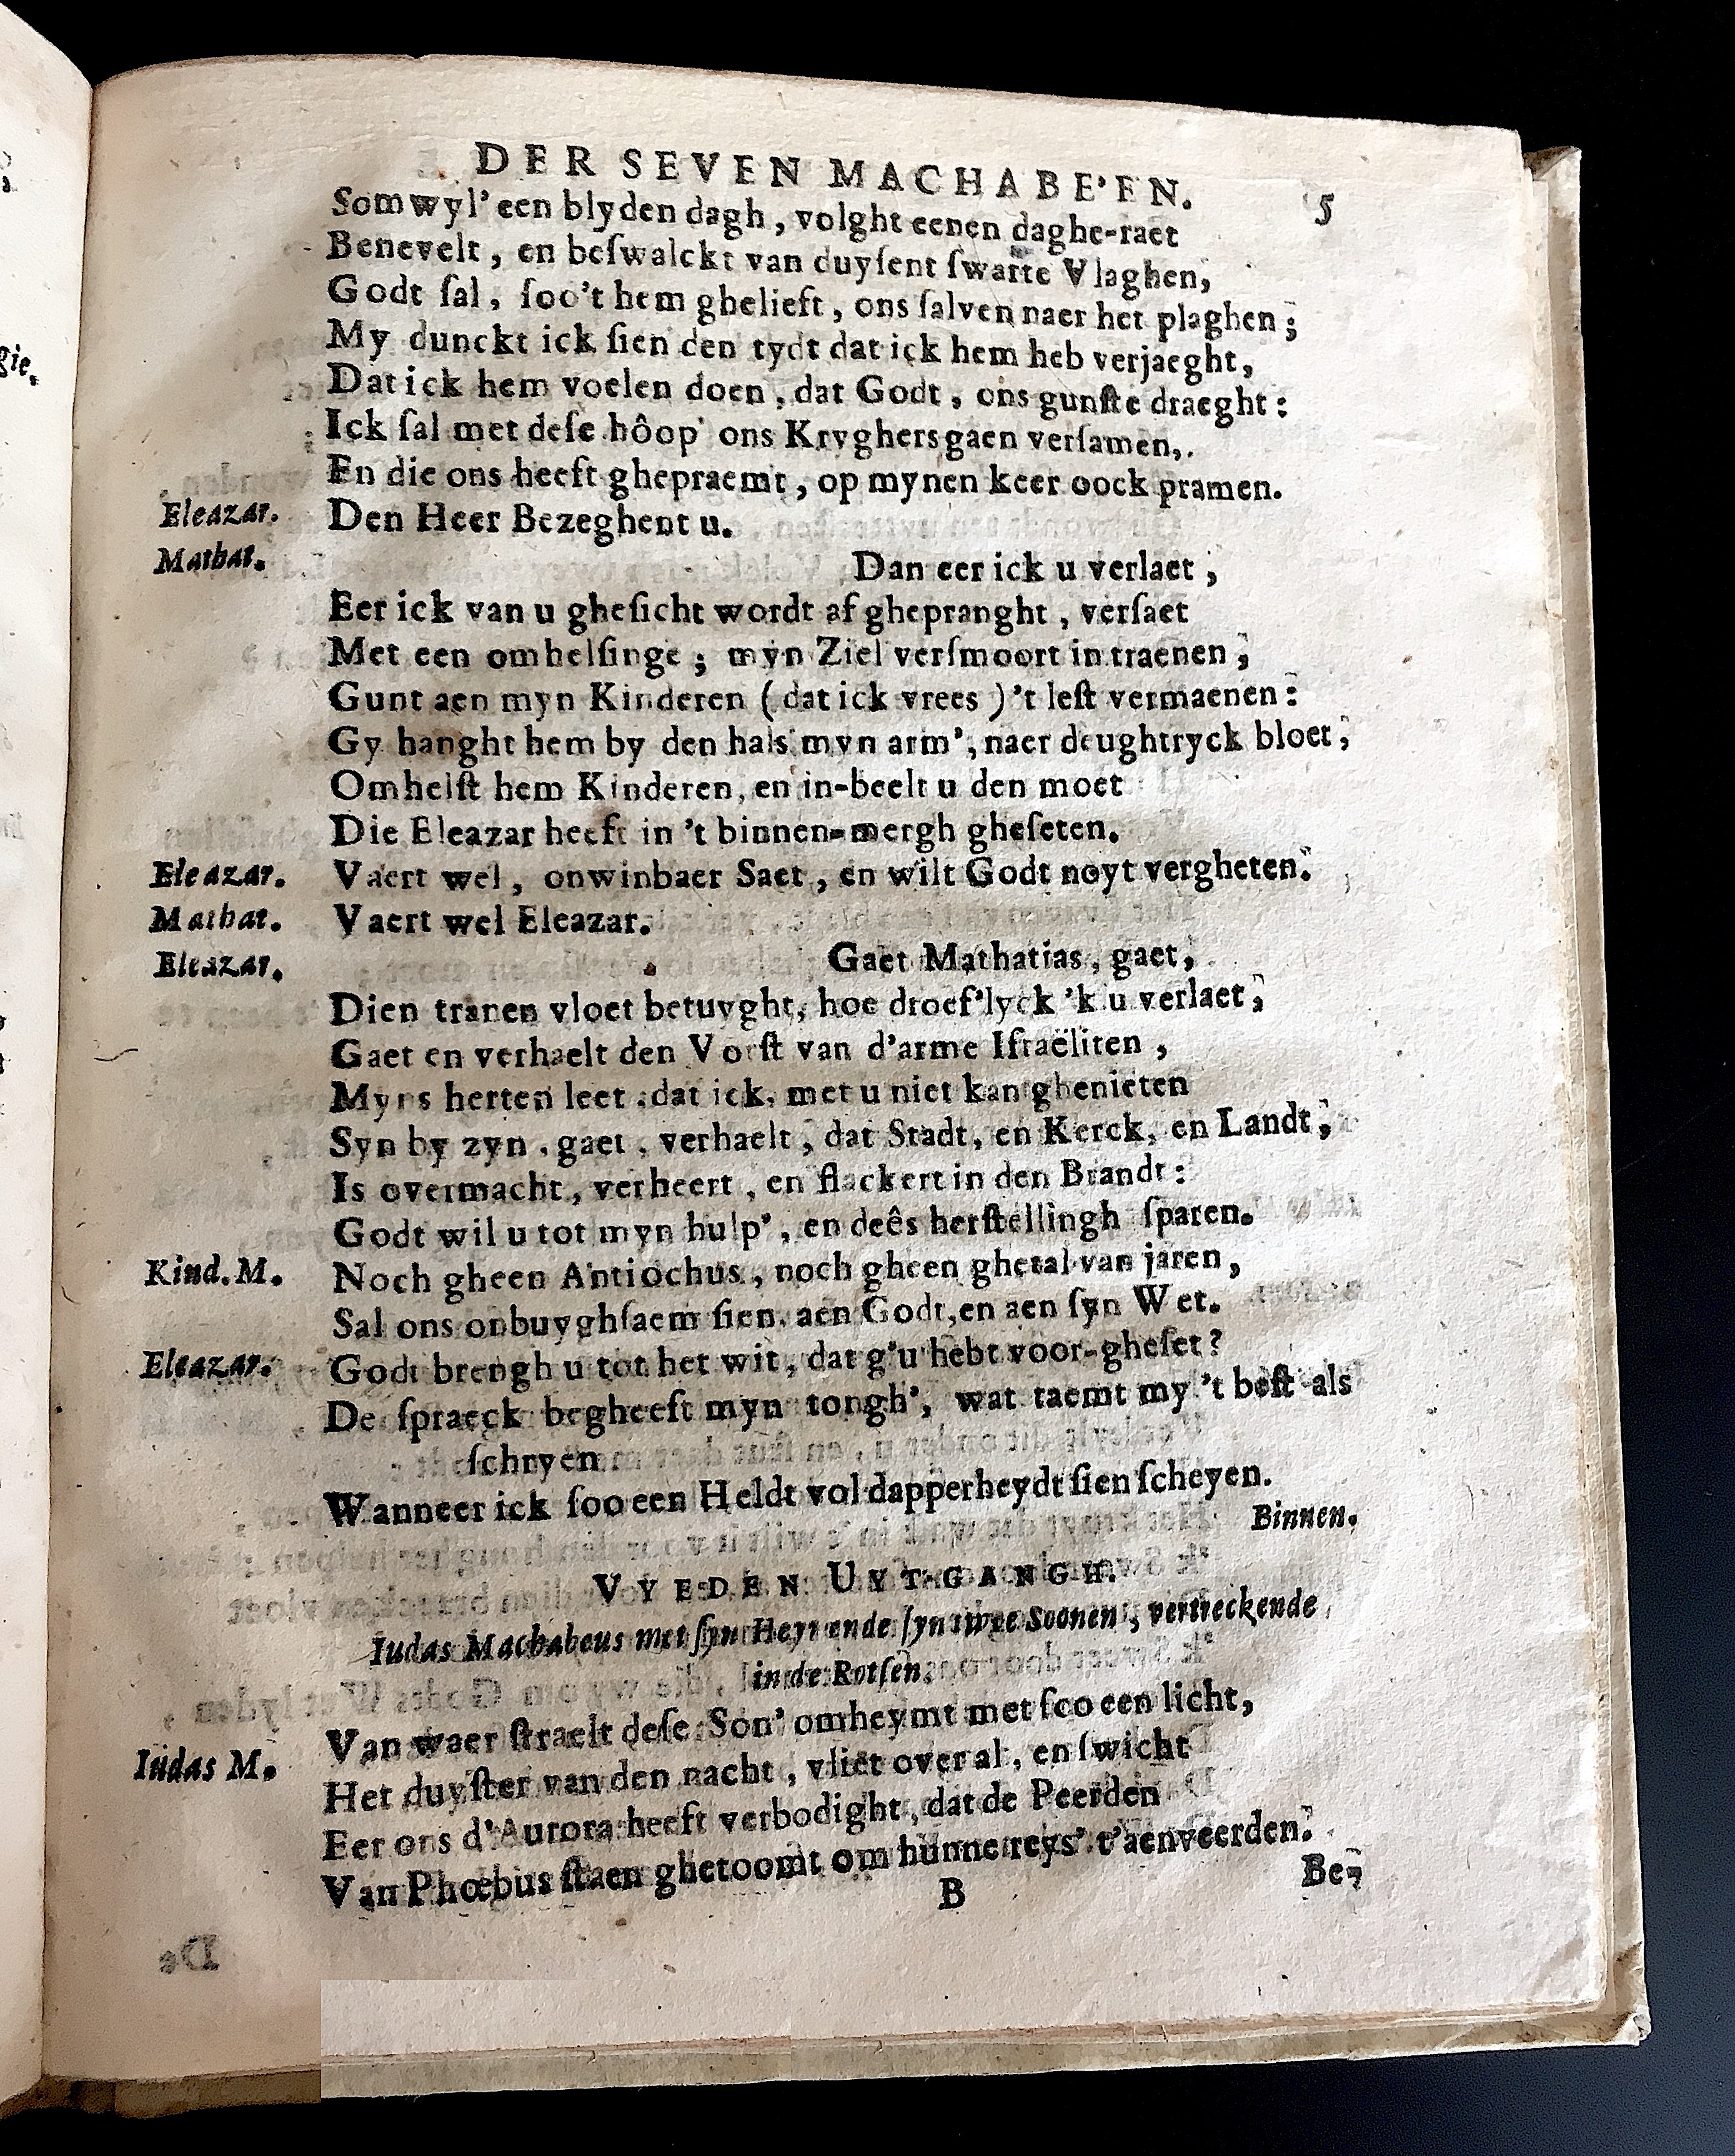 DER SEVEN MACHABE'EN. 5
Somwyl' een blyden dagh, volght eenen daghe-raet
Benevelt, en beſwalckt van duyſent ſwarte Vlaghen,
Godt ſal, ſoo't hem ghelieft, ons ſalven naer het plaghen;
My dunckt ick ſien den tydt dat ick hem heb verjaeght,
Dat ick hem voelen doen, dat Godt, ons gunſte draeght:
Ick ſal met deſe hôop' ons Kryghers gaen verſamen,
En die ons heeft ghepraemt, op mynen keer oock pramen.
Eleazar. Den Heer Bezeghent u.
Mathat. Dan eer ick u verlaet,
Eer ick van u gheſicht wordt af ghepranght, verſaet
Met een omhelſinge; myn Ziel verſmoort in traenen,
Gunt aen myn Kinderen (dat ick vrees) 't leſt vermaenen:
Gy hanght hem by den hals myn arm', naer deughtryck bloet,
Omhelſt hem Kinderen, en in-beelt u den moet
Die Eleazar heeft in 't binnen-mergh gheſeten.
Eleazar. Vaert wel, onwinbaer Saet, en wilt Godt noyt vergheten.
Mathat. Vaert wel Eleazar.
Eleazar. Gaet Mathatias, gaet,
Dien tranen vloet betuyght, hoe droef'lyck 'k u verlaet,
Gaet en verhaelt den Vorſt van d'arme Iſraëliten,
Myns herten leet, dat ick, met u niet kan ghenieten
Syn by zyn, gaet, verhaelt, dat Stadt, en Kerck, en Landt,
Is overmacht, verheert, en flackert in den Brandt:
Godt wil u tot myn hulp', en deês herſtellingh ſparen.
Kind. M. Noch gheen Antiochus, noch gheen ghetal van jaren,
Sal ons onbuyghſaem ſien, aen Godt, en aen ſyn Wet.
Eleazar. Godt brengh u tot het wit, dat g'u hebt voor-gheſet?
De ſpraeck begheeft myn tongh', wat taemt my 't beſt als
ſchryen
Wanneer ick ſoo een Heldt vol dapperheydt ſien ſcheyen.
Binnen.
VYEDEN UYT-GANGH.
Iudas Machabeus met ſyn Heyr ende ſyn twee Soonen, vertreckende
in de Rotſen.
Iudas M. Van waer ſtraelt deſe Son' omheymt met ſoo een licht,
Het duyſter van den nacht, vliet over al, en ſwicht
Eer ons d'Aurora heeft verbodight, dat de Peerden
Van Phœbus ſtaen ghetoomt om hunne reys' t'aenveerden.
B Be-
De